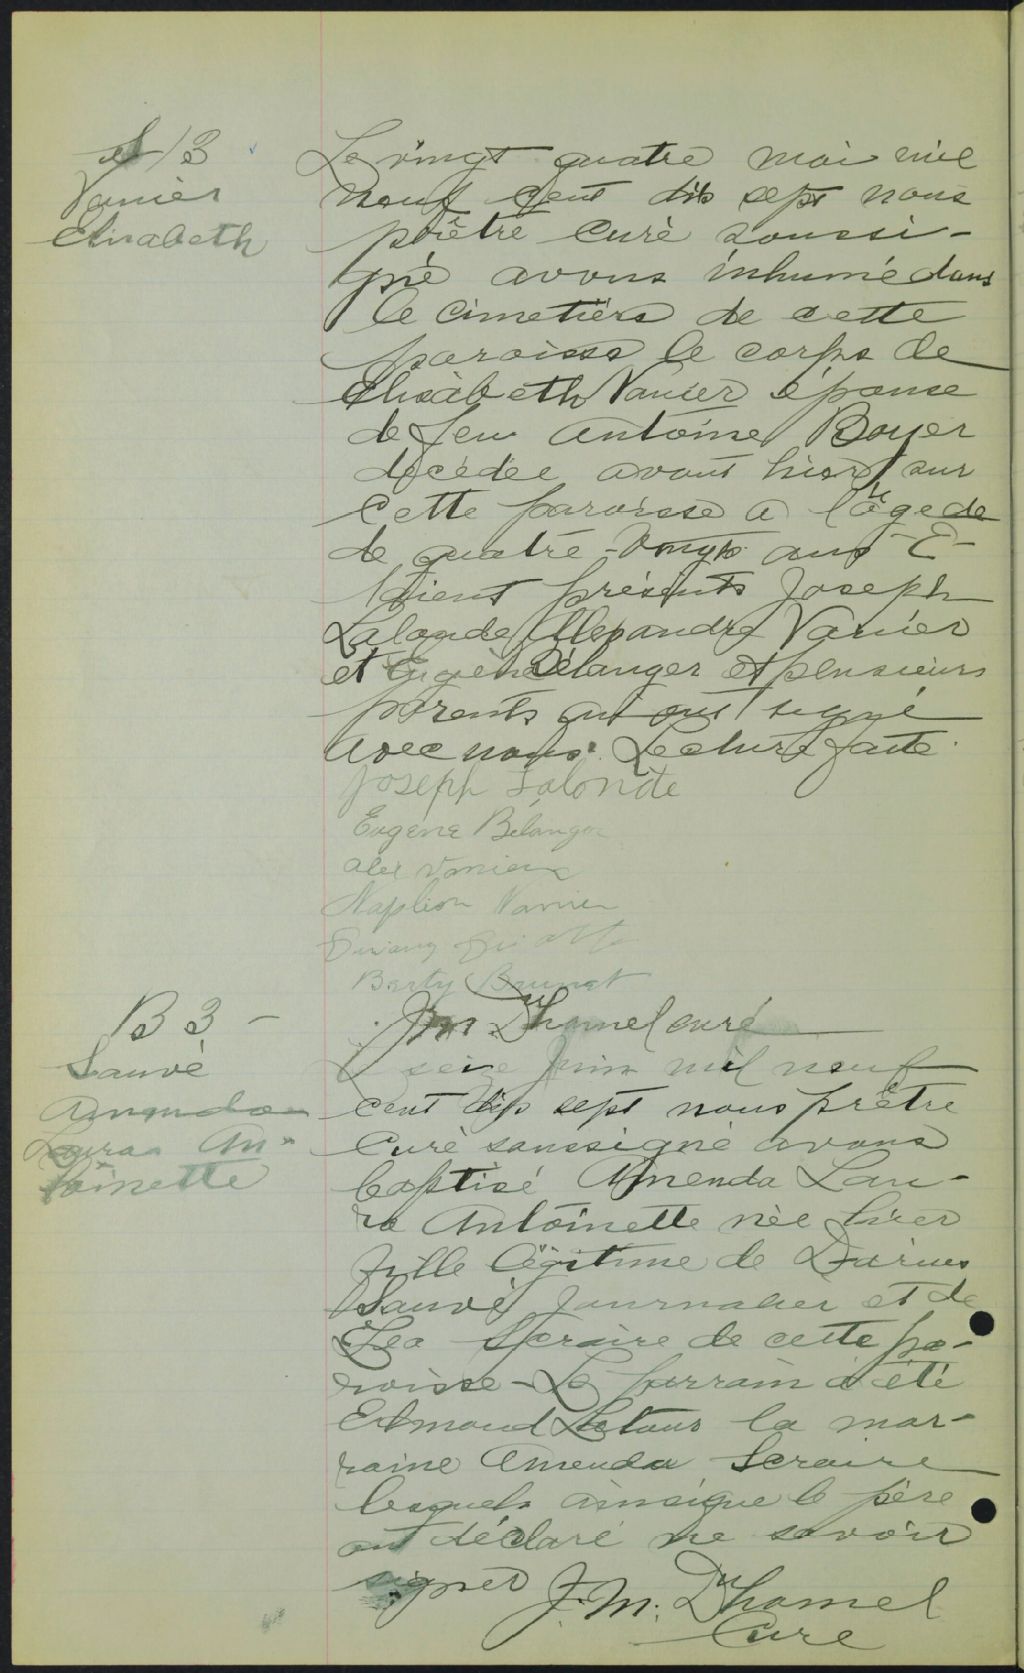 S 3
Vanier
Elisabeth
Le vingt quatre mai mil
neuf cent dix sept nous
prêtre curé soussi-
gné avons inhumé dans
le cimetière de cette
paroisse le corps de
Elisabeth Vanier épouse
de feu Antoine Boyer
décédée avant hier sur
cette paroisse a l'âge de
de quatre-vingts ans - É-
taient présents Joseph
Lalonde Alexandre Vanier
et Eugène Bélanger et plusieurs
parents qui ont signé
avec nous. Lecture faite.
Joseph Lalonde
Eugène Bélanger
Alex Vanier
Naplion Vanier
Barty Brunet
J. M. Dhamel curé
B 3 -
Sauvé
Amenda
Laura An-
toinette
Le seize juin mil neuf
cent dix sept nous prêtre
curé soussigné avons
baptisé Amenda Lau-
ra Antoinette née hier
fille légitime de Darius
Sauvé journalier et de
Léa Scraire de cette pa-
roisse - Le parrain a été
Edmond Latour la mar-
raine Amenda Scraire
lesquels ainsi que le père
ont déclaré ne savoir
signer J. M. Dhamel
Curé